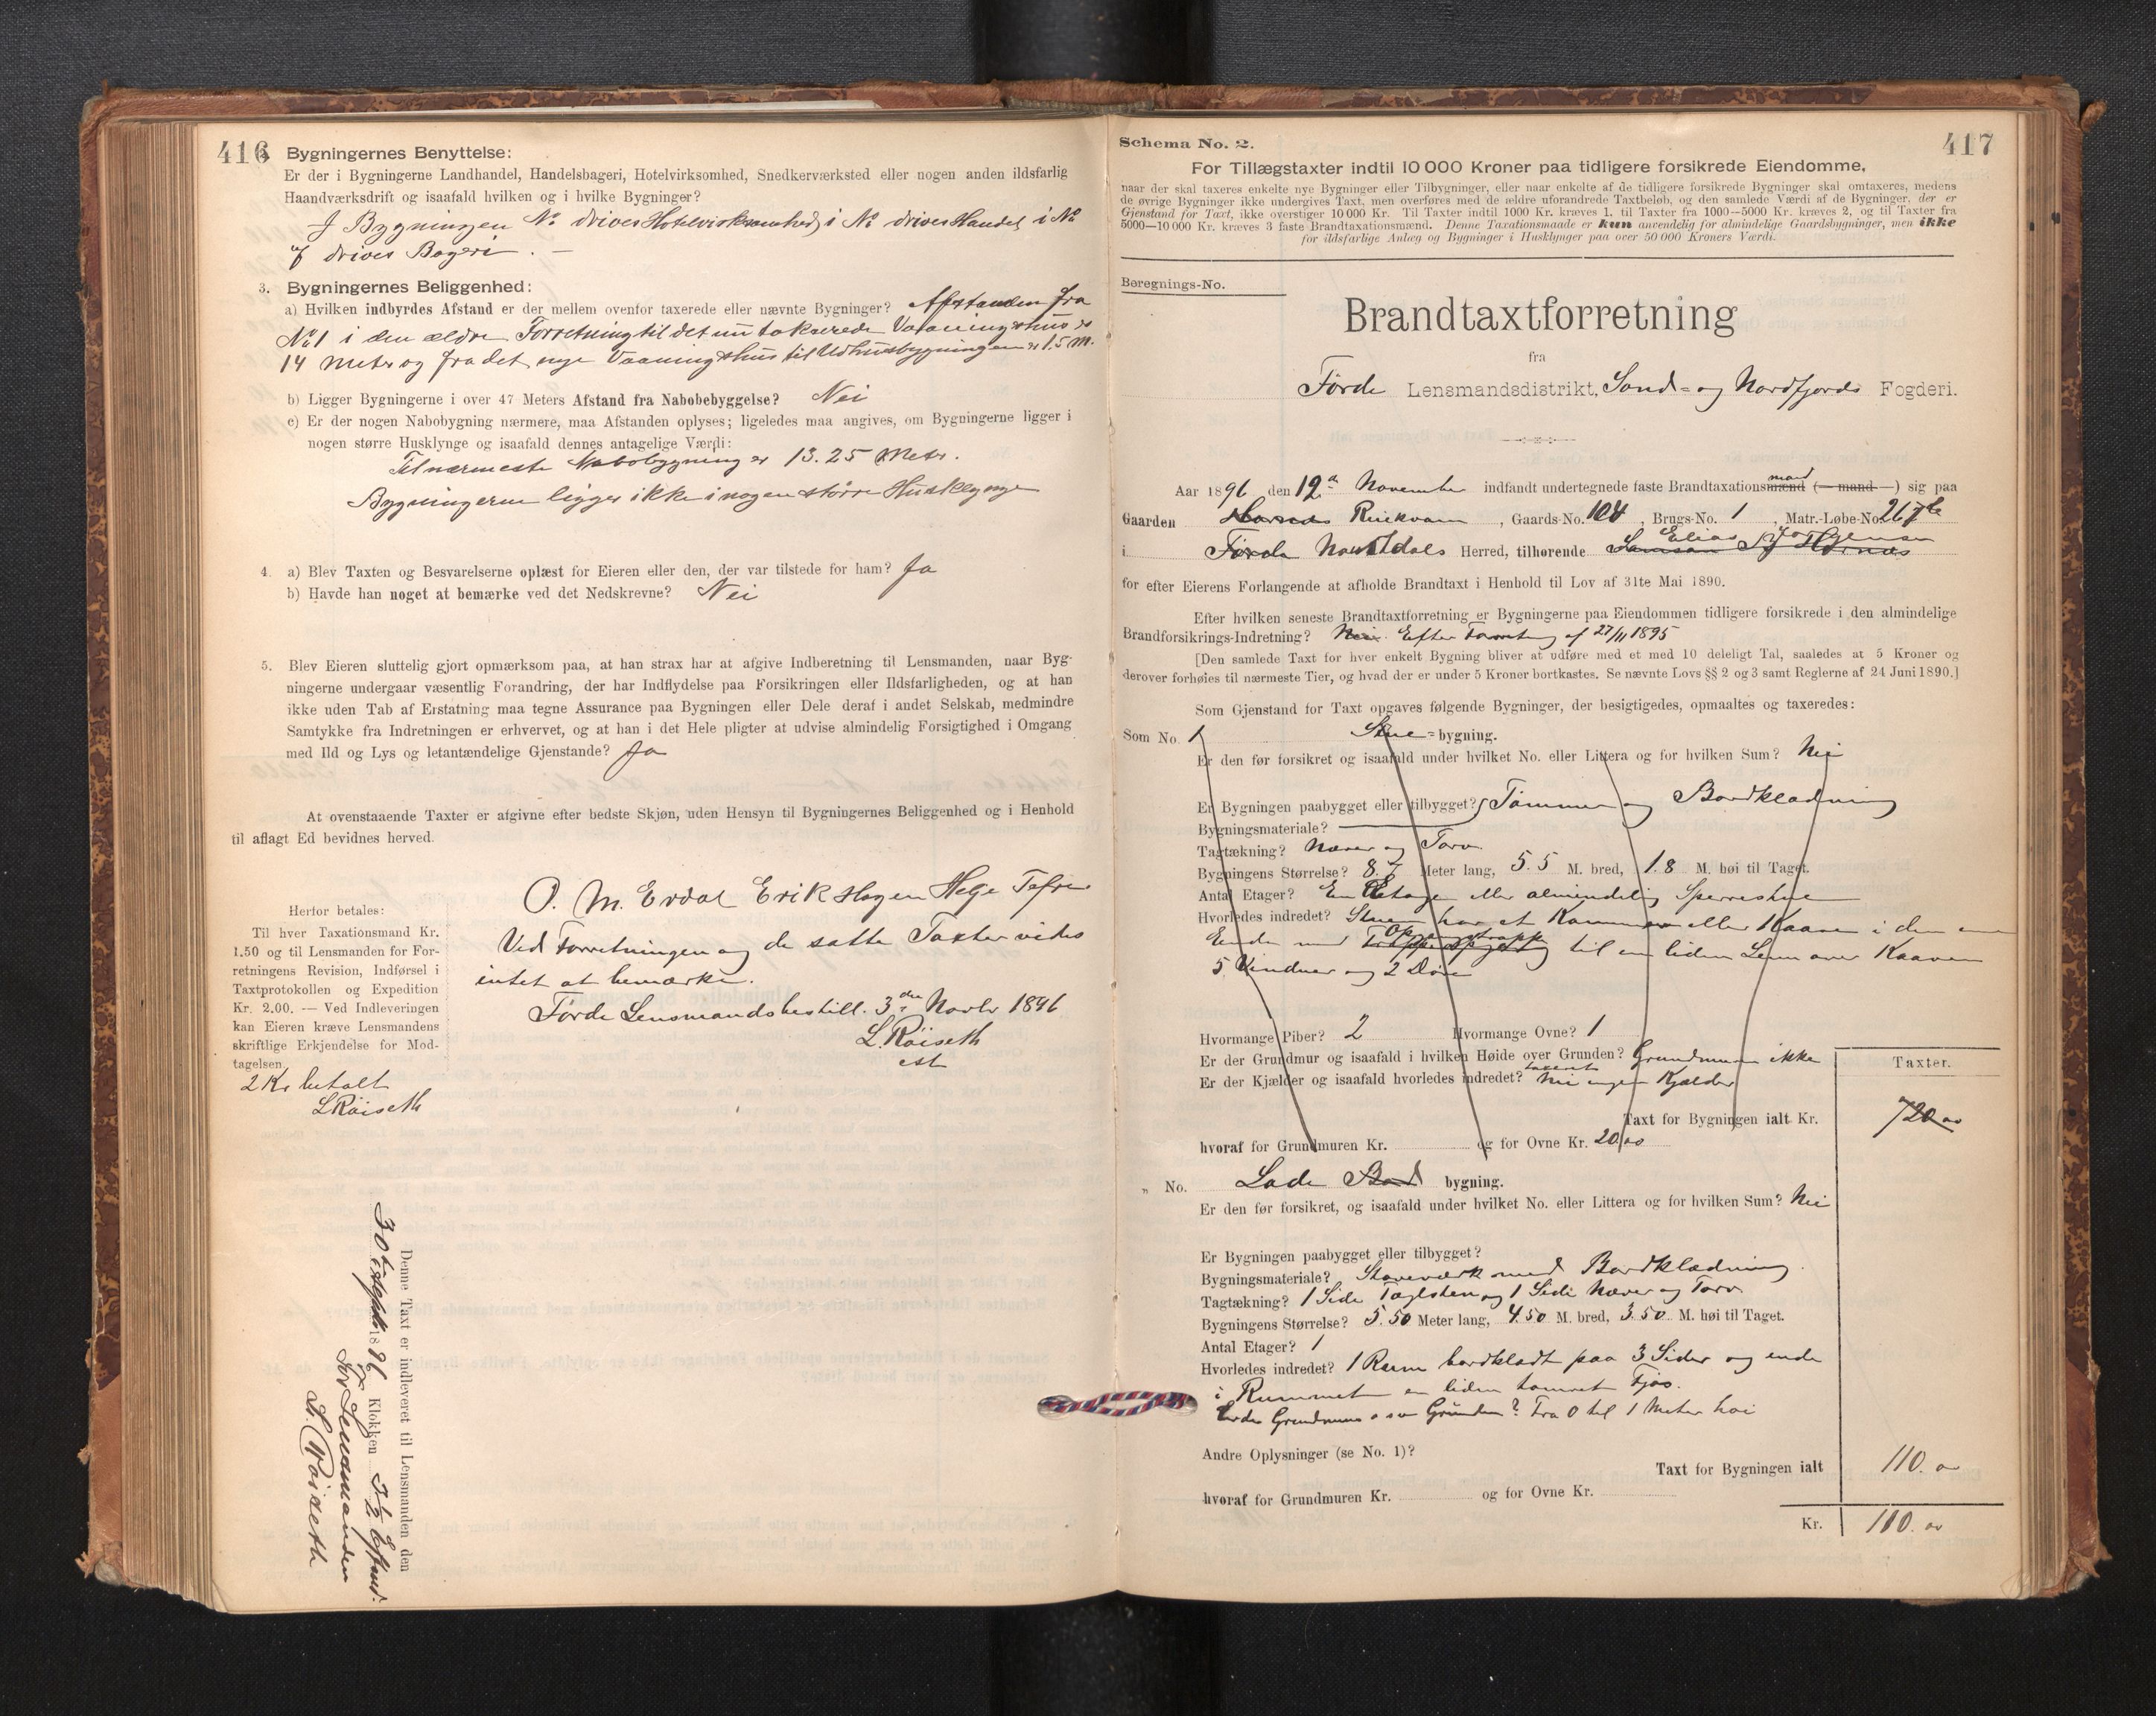 416
2. Bygningernes Benyttelse:
Er der i Bygningerne Landhandel, Handelsbageri, Hotelvirksomhed, Snedkerværksted eller nogen anden ildsfarlig
Haandværksdrift og isaafald hvilken og i hvilke Bygninger?
I Bygningen No drives Hotelvirksomhed, i No drives Handel i No
drives Bageri. —
3. Bygningernes Beliggenhed:
a) Hvilken indbyrdes Afstand er der mellem ovenfor taxerede eller nævnte Bygninger? Afstanden fra
No 1 i den ældre Forretning til det nu takserede Vaaningshus er
14 Meter og fra det nye Vaaningshus til Udhusbygningen er 15 M.
b) Ligger Bygningerne i over 47 Meters Afstand fra Nabobebyggelse? Nei
c) Er der nogen Nabobygning nærmere, maa Afstanden oplyses; ligeledes maa angives, om Bygningerne ligger i
nogen større Husklynge og isaafald dennes antagelige Værdi:
Til nærmeste Nabobygning er 13.25 Meter.
Bygningerne ligger ikke i nogen större Husklynge
4. a) Blev Taxten og Besvarelserne oplæst for Eieren eller den, der var tilstede for ham? Ja
b) Havde han noget at bemærke ved det Nedskrevne? Nei
5. Blev Eieren sluttelig gjort opmærksom paa, at han strax har at afgive Indberetning til Lensmanden, naar Byg-
ningerne undergaar væsentlig Forandring, der har Indflydelse paa Forsikringen eller Ildsfarligheden, og at han
ikke uden Tab af Erstatning maa tegne Assurance paa Bygningen eller Dele deraf i andet Selskab, medmindre
Samtykke fra Indretningen er erhvervet, og at han i det Hele pligter at udvise almindelig Forsigtighed i Omgang
med Ild og Lys og letantændelige Gjenstande? Ja
At ovenstaaende Taxter er afgivne efter bedste Skjøn, uden Hensyn til Bygningernes Beliggenhed og i Henhold
til aflagt Ed bevidnes herved.
O. M. Erdal Erik Hagen Helge Tefre
Ved Forretningen og de satte Taxter vides
intet at bemærke.
Förde Lensmandsbestill. 3die Novbr 1896
L. Röiseth
cst
Herfor betales:
Til hver Taxationsmand Kr.
1.50 og til Lensmanden for For-
retningens Revision, Indførsel i
Taxtprotokollen og Expedition
Kr. 2.00. — Ved Indleveringen
kan Eieren kræve Lensmandens
skriftlige Erkjendelse for Mod-
tagelsen.
2 Kr betalt
L Röiseth
Denne Taxt er indleveret til Lensmanden den
30te Septbr 1896 Klokken 3 1/2 Eftmd.
for Lensmanden
L. Röiseth
417
Schema No. 2.
For Tillægstaxter indtil 10 000 Kroner paa tidligere forsikrede Eiendomme,
naar der skal taxeres enkelte nye Bygninger eller Tilbygninger, eller naar enkelte af de tidligere forsikrede Bygninger skal omtaxeres, medens
de øvrige Bygninger ikke undergives Taxt, men overføres med de ældre uforandrede Taxtbeløb, og den samlede Værdi af de Bygninger, der er
Gjenstand for Taxt, ikke overstiger 10 000 Kr. Til Taxter indtil 1000 Kr. kræves 1, til Taxter fra 1000—5000 Kr. kræves 2, og til Taxter fra
5000—10 000 Kr. kræves 3 faste Brandtaxationsmænd. Denne Taxationsmaade er kun anvendelig for almindelige Gaardsbygninger, men ikke
for ildsfarlige Anlæg og Bygninger i Husklynger paa over 50 000 Kroners Værdi.
Beregnings-No.
Brandtaxtforretning
fra
Förde Lensmandsdistrikt, Sønd- og Nordfjords Fogderi.
Aar 1896 den 12te November indfandt undertegnede faste Brandtaxationsmænd mand (—mand—) sig paa
Gaarden Horsnes Reiakvam, Gaards-No. 104, Brugs-No. 1, Matr.-Løbe-No. 267b
i Førde Naustdals Herred, tilhørende Elias
for efter Eierens Forlangende at afholde Brandtaxt i Henhold til Lov af 31te Mai 1890.
Efter hvilken seneste Brandtaxtforretning er Bygningerne paa Eiendommen tidligere forsikrede i den almindelige
Brandforsikrings-Indretning? Nei. Efter Forretning af 27/11 1895
[Den samlede Taxt for hver enkelt Bygning bliver at udføre med et med 10 deleligt Tal, saaledes at 5 Kroner og
derover forhøies til nærmeste Tier, og hvad der er under 5 Kroner bortkastes. Se nævnte Lovs §§ 2 og 3 samt Reglerne af 24 Juni 1890.]
Som Gjenstand for Taxt opgaves følgende Bygninger, der besigtigedes, opmaaltes og taxeredes:
Som No. 1 Stue-bygning.
Er den før forsikret og isaafald under hvilket No. eller Littera og for hvilken Sum? Nei
Er Bygningen paabygget eller tilbygget? Tömmer og Bordklædning
Bygningsmateriale?
Tagtækning? Næver og Torv
Bygningens Størrelse? 8.7 Meter lang, 5.5 M. bred, 1.8 M. høi til Taget.
Antal Etager? En Etage eller almindelig Sperrestue
Hvorledes indredet? Stuen har et Kammer eller Kaave i den ene
Ende med Opgangstrappe til en liden Lem over Kaaven
5 Vinduer og 2 Döre
Hvormange Piber? 2 Hvormange Ovne? 1
Er der Grundmur og isaafald i hvilken Høide over Grunden? Grundmuren ikke
taxeret
Er der Kjælder og isaafald hvorledes indredet? Nei ingen Kjælder
Taxter.
Taxt for Bygningen ialt Kr. 720 00
hvoraf for Grundmuren Kr. og for Ovne Kr. 20,00
" No. Lade Bord bygning.
Er den før forsikret, og isaafald under hvilket No. eller Littera og for hvilken Sum? Nei
Er Bygningen paabygget eller tilbygget?
Bygningsmateriale? Staveværk med Bordklædning.
Tagtækning? 1 Side Taglsten og 1 Side Næver og Torv
Bygningens Størrelse? 5.50 Meter lang, 4.50 M. bred, 3.50 M. høi til Taget.
Antal Etager? 1
Hvorledes indredet? 1 Rum bordklædt paa 3 Sider og ende
i Rummet en liden tömret Fjös.
Er der Grundmur o. sv Grunden? Fra 0 til 1 Meter höi
Andre Oplysninger (se No. 1)?
Taxt for Bygningen ialt 110. 00
hvoraf for Grundmuren Kr. og for Ovne Kr.
Kr. 110. 00